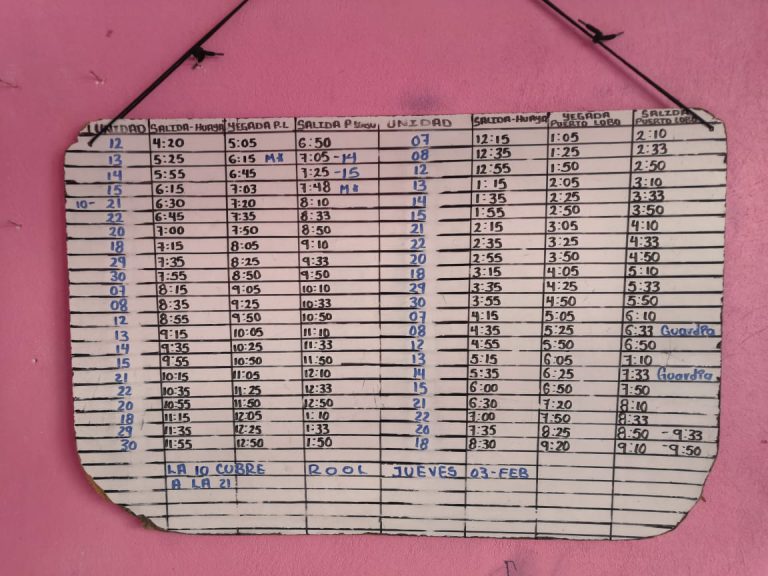 UNIDAD SALIDA-HUAYA YEGADA P.L SALIDA P. UNIDAD SALIDA-HUAYA YEGADA PUERTO LOBO SALIDA PUERTO LOBO
12 4:20 5:05 6:50 07 12:15 1:05 2:10
13 5:25 6:15 M* 7:05-14 08 12:35 1:25 2:33
14 5:55 6:45 7:25-15 12 12:55 1:50 2:50
15 6:15 7:03 7:48 M* 13 1:15 2:05 3:10
10- 21 6:30 7:20 8:10 14 1:35 2:25 3:33
22 6:45 7:35 8:33 15 1:55 2:50 3:50
20 7:00 7:50 8:50 21 2:15 3:05 4:10
18 7:15 8:05 9:10 22 2:35 3:25 4:33
29 7:35 8:25 9:33 20 2:55 3:50 4:50
30 7:55 8:50 9:50 18 3:15 4:05 5:10
07 8:15 9:05 10:10 29 3:35 4:25 5:33
08 8:35 9:25 10:33 30 3:55 4:50 5:50
12 8:55 9:50 10:50 07 4:15 5:05 6:10
13 9:15 10:05 11:10 08 4:35 5:25 6:33 Guardia
14 9:35 10:25 11:33 12 4:55 5:50 6:50
15 9:55 10:50 11:50 13 5:15 6:05 7:10
21 10:15 11:05 12:10 14 5:35 6:25 7:33 Guardia
22 10:35 11:25 12:33 15 6:00 6:50 7:50
20 10:55 11:50 12:50 21 6:30 7:20 8:10
18 11:15 12:05 1:10 22 7:00 7:50 8:33
29 11:35 12:25 1:33 20 7:35 8:25 8:50 -9:33
30 11:55 12:50 1:50 18 8:30 9:20 9:10 -9:50
LA 10 CUBRE ROOL JUEVES 03-FEB
A LA 21